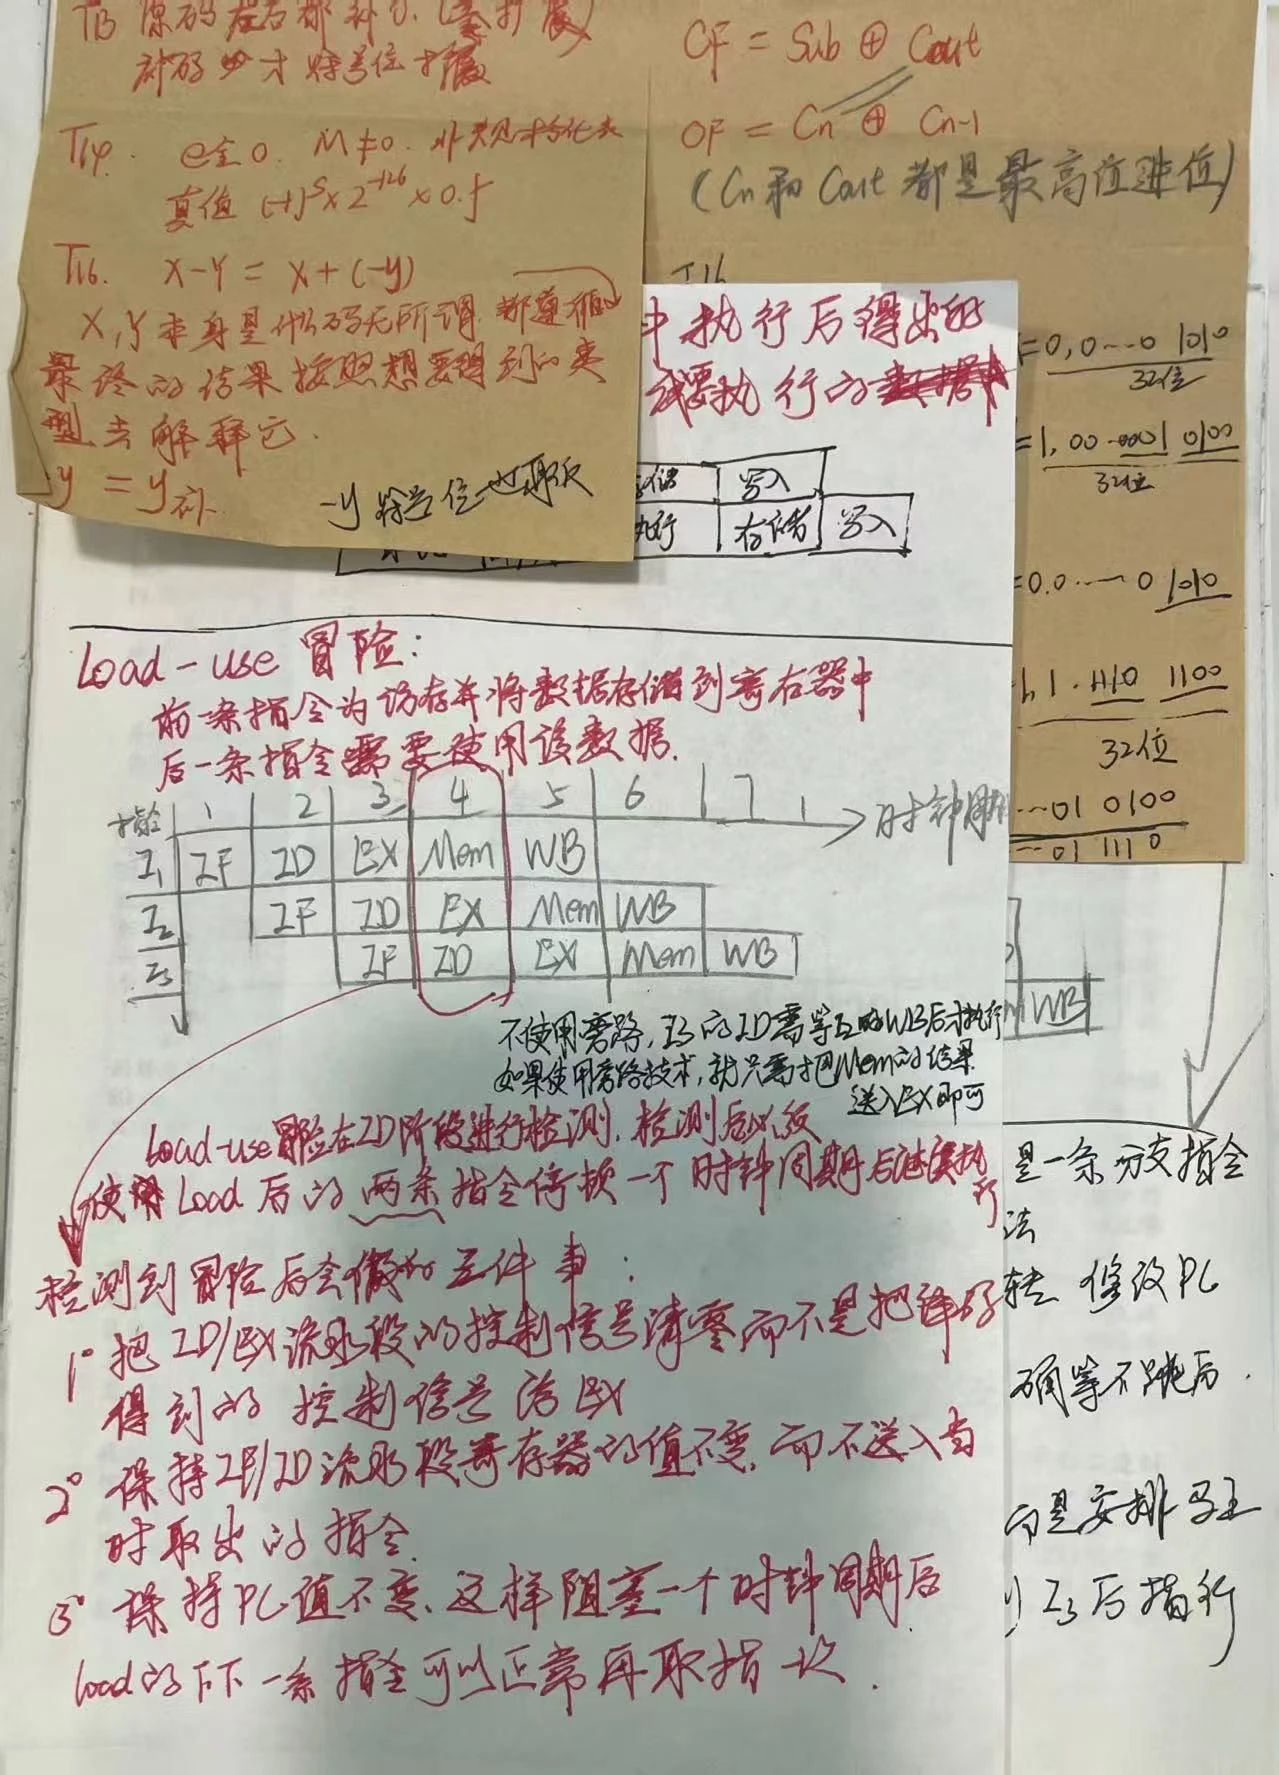 T13 原码左右都补0.(零扩展)
补码少才符号位扩展
T14. e全0. M≠0. 非规格化数
真值 (-1)^S × 2^-126 × 0.f
T16. X-Y = X+(-Y)
X,Y本身是什么码无所谓. 都遵循
最终的结果按照想要得到的类
型去解释它.
y = y补
-y 符号位也取反
CF = Sub ⊕ Cout
OF = Cn ⊕ Cn-1
(Cn和Cout都是最高位进位)
T16
=0,0---0 1010
32位
=1,00---0001 0100
32位
=0.0---0 1010
1.1110 1100
32位
---01 0100
---01 1110
中执行后得出的
或要执行的
存储 写入
执行 存储 写入
Load-use 冒险:
前一条指令为访存并将数据存储到寄存器中
后一条指令需要使用该数据.
指令 1 2 3 4 5 6 7 时钟周期
I1 IF ID EX Mem WB
I2 IF ID EX Mem WB
I3 IF ID EX Mem WB
不使用旁路, I3的ID需等I2的WB后才执行
如果使用旁路技术, 就只需把Mem的结果
送入EX即可
Load-use冒险在ID阶段进行检测, 检测后必须
使 Load后的两条指令停顿一个时钟周期后继续执行
检测到冒险后会做的三件事:
1° 把 ID/EX流水段的控制信号清零而不是把译码
得到的控制信号给EX
2° 保持IF/ID流水段寄存器的值不变, 而不送入当
时取出的指令.
3° 保持PC值不变, 这样阻塞一个时钟周期后
load的下下一条指令可以正常再取指一次.
WB
是一条分支指令
法
转 修改PC
确等不跳后.
而是安排
I3后指行